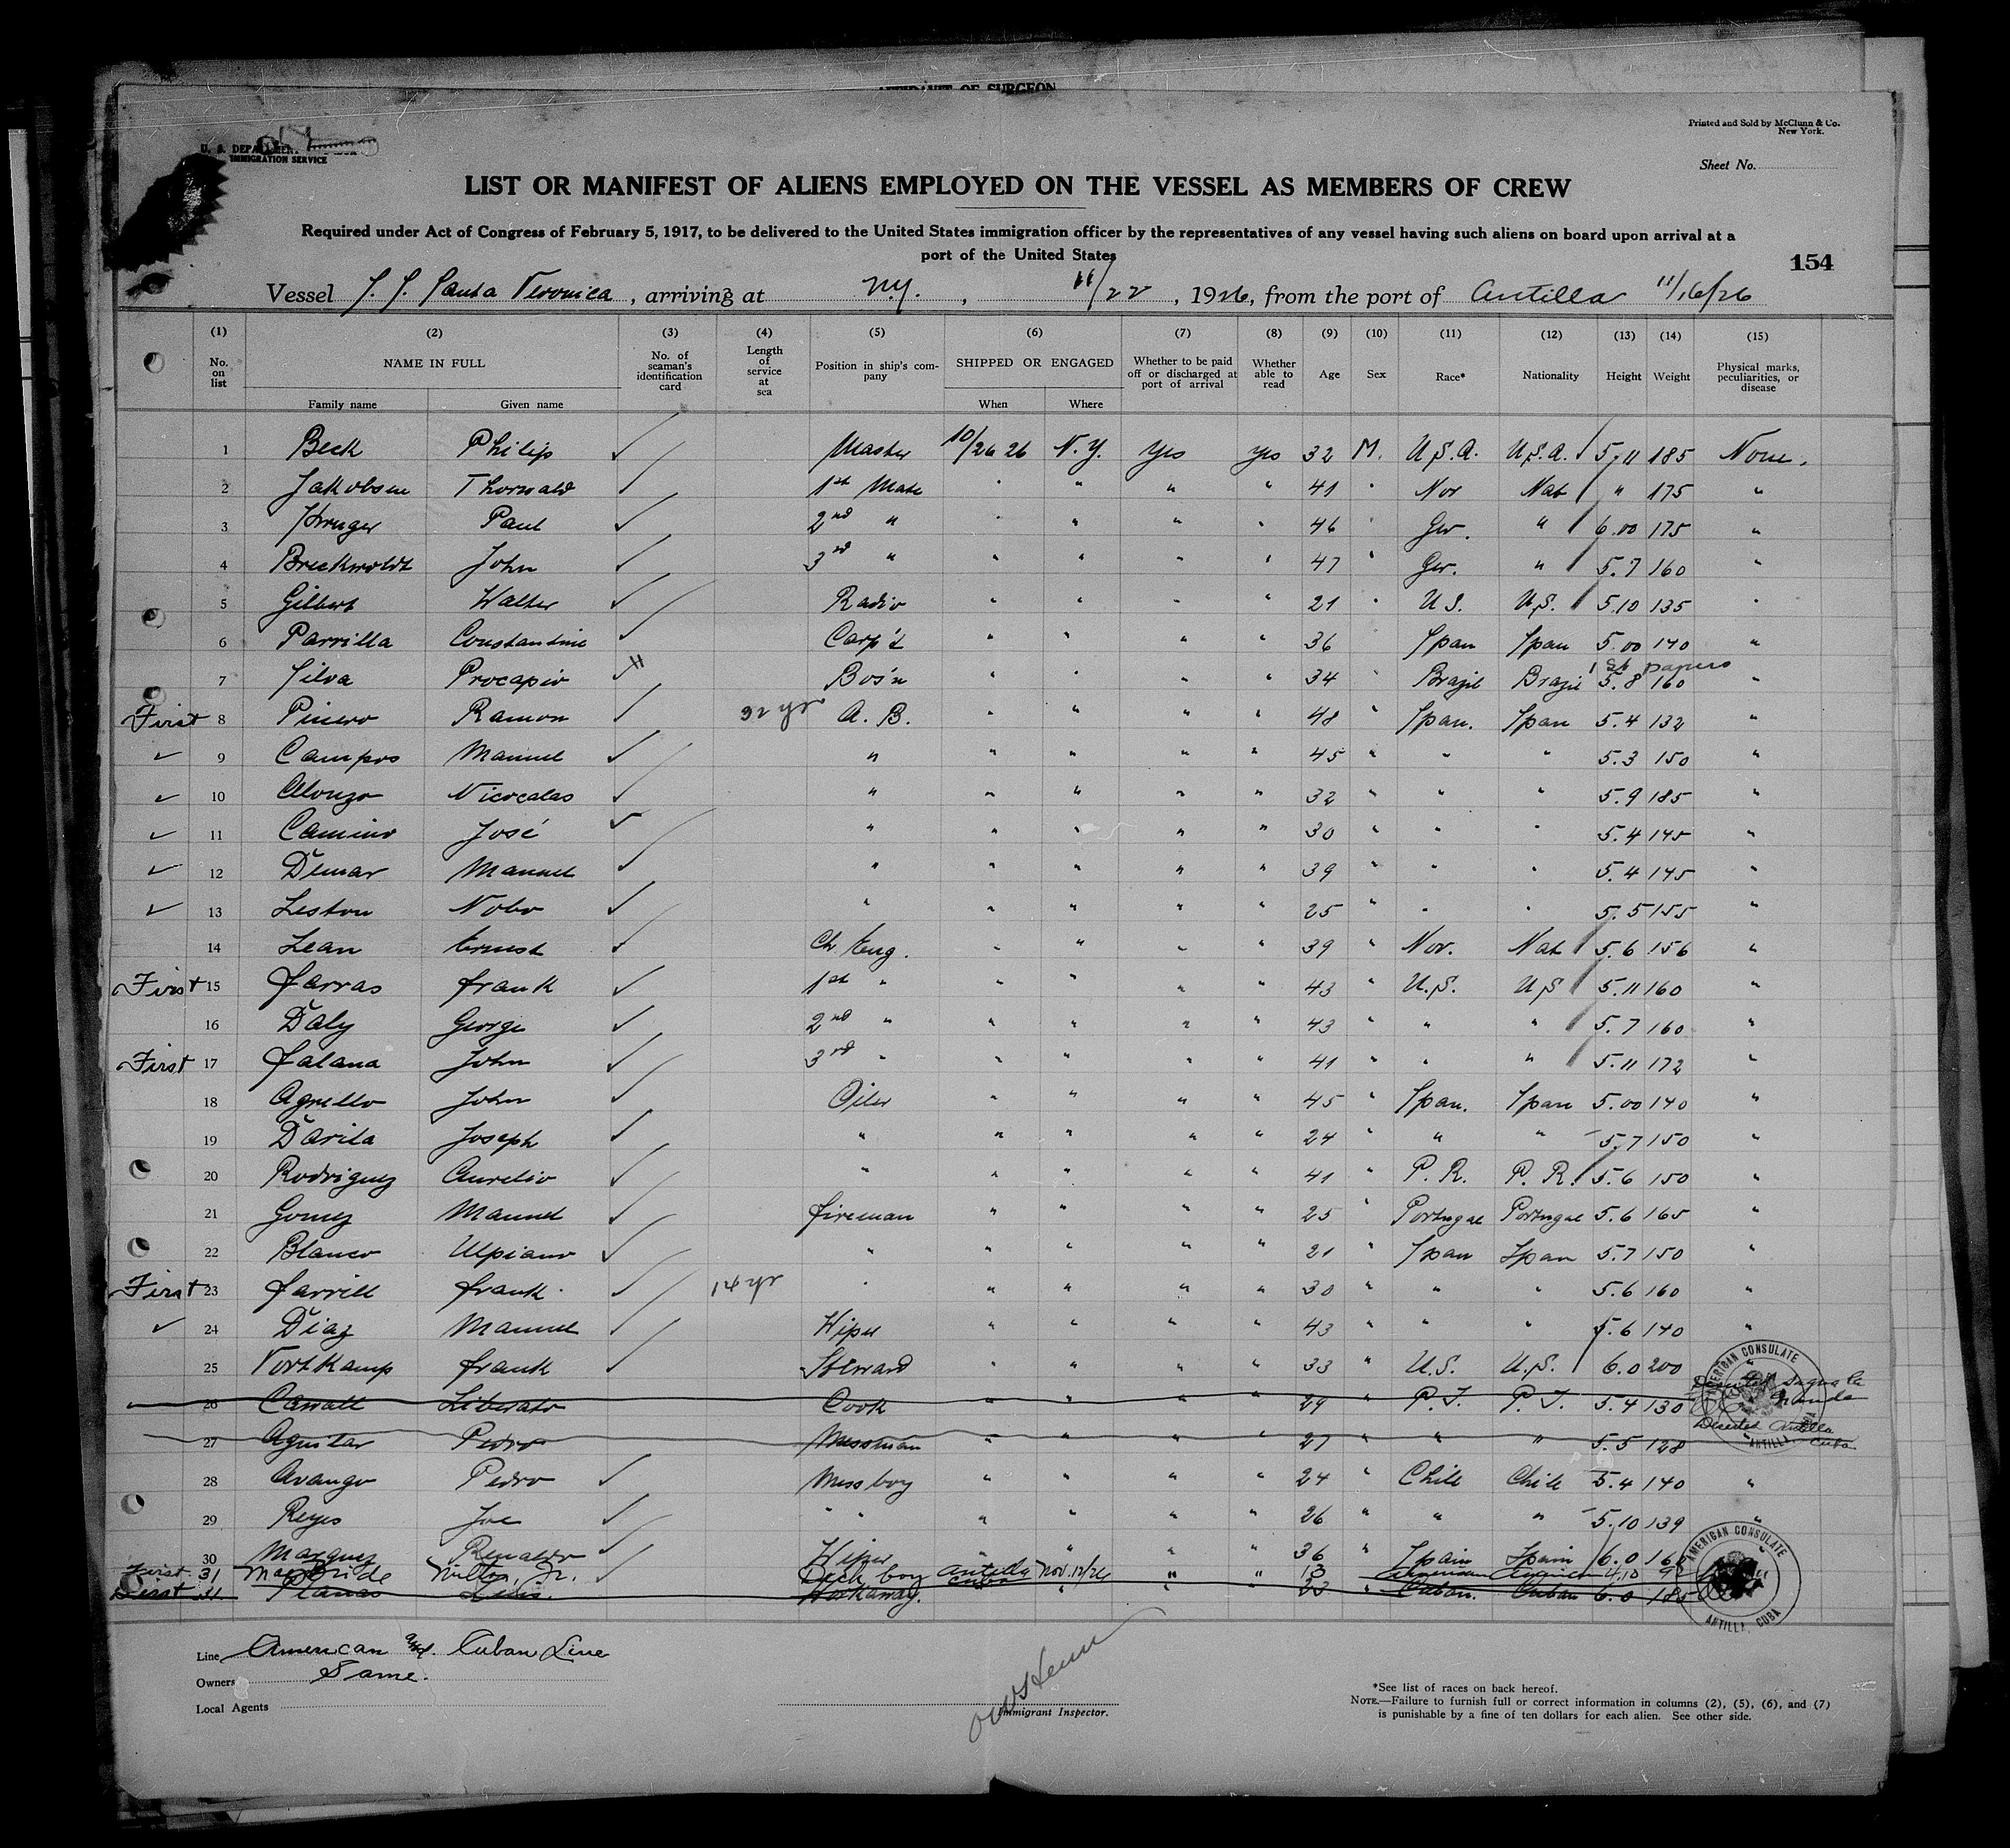 AFFIDAVIT OF SURGEON
Printed and Sold by McClunn & Co.
New York.
U. S. DEPARTMENT
IMMIGRATION SERVICE
Sheet No.
LIST OR MANIFEST OF ALIENS EMPLOYED ON THE VESSEL AS MEMBERS OF CREW
Required under Act of Congress of February 5, 1917, to be delivered to the United States immigration officer by the representatives of any vessel having such aliens on board upon arrival at a
port of the United States
154
Vessel S. S. Santa Veronica, arriving at N.Y., 11/22, 1926, from the port of Antilla 11/16/26
(1) (2) (3) (4) (5) (6) (7) (8) (9) (10) (11) (12) (13) (14) (15)
No. on list NAME IN FULL No. of seaman's identification card Length of service at sea Position in ship's company SHIPPED OR ENGAGED Whether to be paid off or discharged at port of arrival Whether able to read Age Sex Race* Nationality Height Weight Physical marks, peculiarities, or disease
Family name Given name When Where
1 Beck Philip ✓ Master 10/26 26 N.Y. Yes yes 32 M. U.S.A. U.S.A. 5.11 185 None.
2 Jakobsen Thorwald ✓ 1st Mate " " " " 41 " Nor Nat " 175 "
3 Kruger Paul ✓ 2nd " " " " " 46 " Ger. " 6.00 175 "
4 Breckwoldt John ✓ 3rd " " " " " 47 " Ger. " 5.7 160 "
5 Gilbert Walter ✓ Radio " " " " 21 " U.S. U.S. 5.10 135 "
6 Parrilla Constantine ✓ Carp't " " " " 36 Span Span 5.00 140 "
1st papers
7 Silva Procapio ✓ Bos'n " " " " 34 " Brazil Brazil 5.8 160 "
First 8 Pinero Ramon ✓ 32 yr A. B. " " " " 48 " Span. Span 5.4 132 "
✓ 9 Campos Manuel ✓ " " " " " 45 " " " 5.3 150 "
✓ 10 Alonzo Nicocalas ✓ " " " " " 32 " " " 5.9 185 "
✓ 11 Camino José ✓ " " " " " 30 " " " 5.4 145 "
✓ 12 Demar Manuel ✓ " " " " " 39 " " " 5.4 145 "
✓ 13 Leston Nobo ✓ " " " " " 25 " " " 5.5 155 "
14 Lean Ernest ✓ Ch Eng. " " " " 39 " Nor. Nat 5.6 156 "
First 15 Farras Frank ✓ 1st " " " " " 43 " U.S. U.S 5.11 160 "
16 Daly George ✓ 2nd " " " " " 43 " " " 5.7 160 "
First 17 Falana John ✓ 3rd " " " " " 41 " " " 5.11 172 "
18 Agrello John ✓ Oiler " " " " 45 " Span. Span 5.00 140 "
19 Davila Joseph ✓ " " " " " 24 " " " 5.7 150 "
20 Rodriguez Aurelio ✓ " " " " " 41 " P. R. P. R. 5.6 150 "
21 Gomez Manuel ✓ Fireman " " " " 25 " Portugal Portugal 5.6 165 "
22 Blanco Ulpiano ✓ " " " " " 21 " Span Span 5.7 150 "
First 23 Farrill Frank ✓ 14 yr " " " " " 30 " " " 5.6 160 "
✓ 24 Diaz Manuel ✓ Wiper " " " " 43 " " " 5.6 140 "
25 Vortkamp Frank ✓ Steward " " " " 33 " U.S. U.S. 6.0 200 "
26 Liberato Cook " " " " 29 " P.I. P.I. 5.4 130 Sagua la Grande
27 Aguilar Pedro Messman " " " " 27 " " " 5.5 128 Deserted Antilla Cuba
AMERICAN CONSULATE
ANTILLA
28 Avango Pedro ✓ Mess boy " " " " 24 " Chile Chile 5.4 140 "
29 Reyes Joe ✓ " " " " " " 26 " " " 5.10 139 "
30 Marquez Renaldo ✓ Wiper " " " 36 " Spain Spain 6.0 "
First 31 MacBride Milton, Jr. ✓ Deck boy Antilla Cuba Nov. 12/26 " " 13 " American American 4.10
First 31 Planas Luis. Workaway. " " " 22 " Cuban. Cuban 6.0 185
AMERICAN CONSULATE
ANTILLA, CUBA
Line American and Cuban Line
Owners Same.
Local Agents
Immigrant Inspector.
*See list of races on back hereof.
NOTE.—Failure to furnish full or correct information in columns (2), (5), (6), and (7)
is punishable by a fine of ten dollars for each alien. See other side.